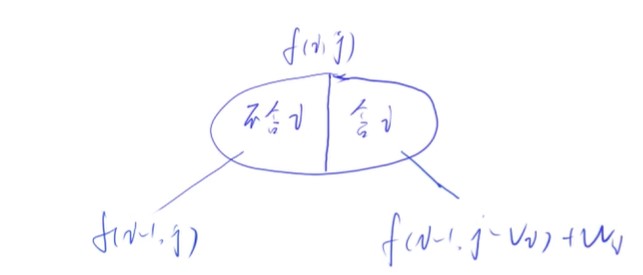 f(i, j)
不含i 含i
f(i-1, j) f(i-1, j-Vi)+Wi